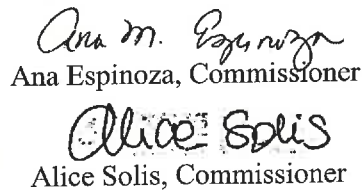 Ana M. Espinoza
Ana Espinoza, Commissioner
Alice Solis
Alice Solis, Commissioner